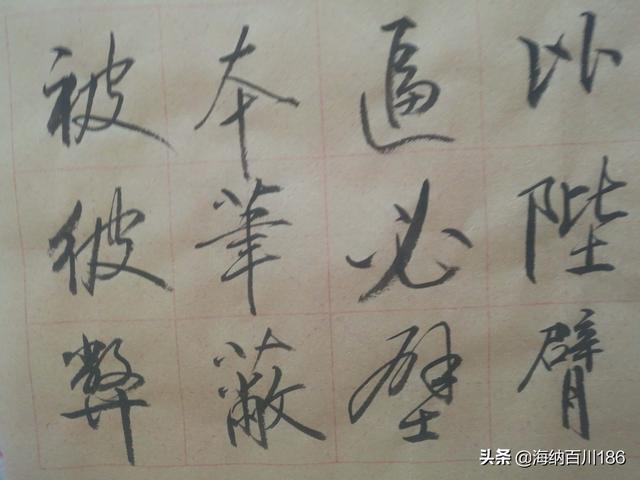 比陛臂
逼必壁
本筆蔽
被彼弊
头条 @海纳百川186